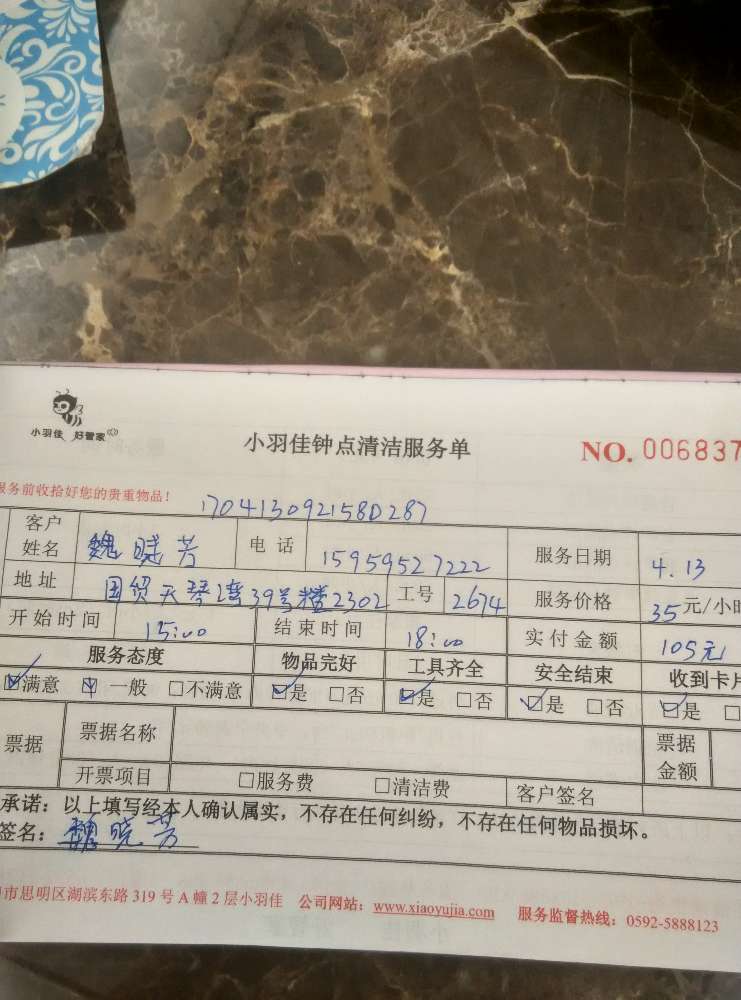 小羽佳 好管家
小羽佳钟点清洁服务单
NO. 006837
服务前收拾好您的贵重物品!
170413092158D287
客户姓名 魏晓芳 电话 15959527222 服务日期 4.13
地址 国贸天琴湾39号楼2302 工号 2674 服务价格 35元/小时
开始时间 15:00 结束时间 18:00 实付金额 105元
服务态度 物品完好 工具齐全 安全结束 收到卡片
☑满意 ☑一般 □不满意 ☑是 □否 ☑是 □否 ☑是 □否 ☑是 □
票据 票据名称 票据金额
开票项目 □服务费 □清洁费 客户签名
承诺:以上填写经本人确认属实,不存在任何纠纷,不存在任何物品损坏。
签名:魏晓芳
市思明区湖滨东路319号A幢2层小羽佳 公司网站:www.xiaoyujia.com 服务监督热线:0592-5888123